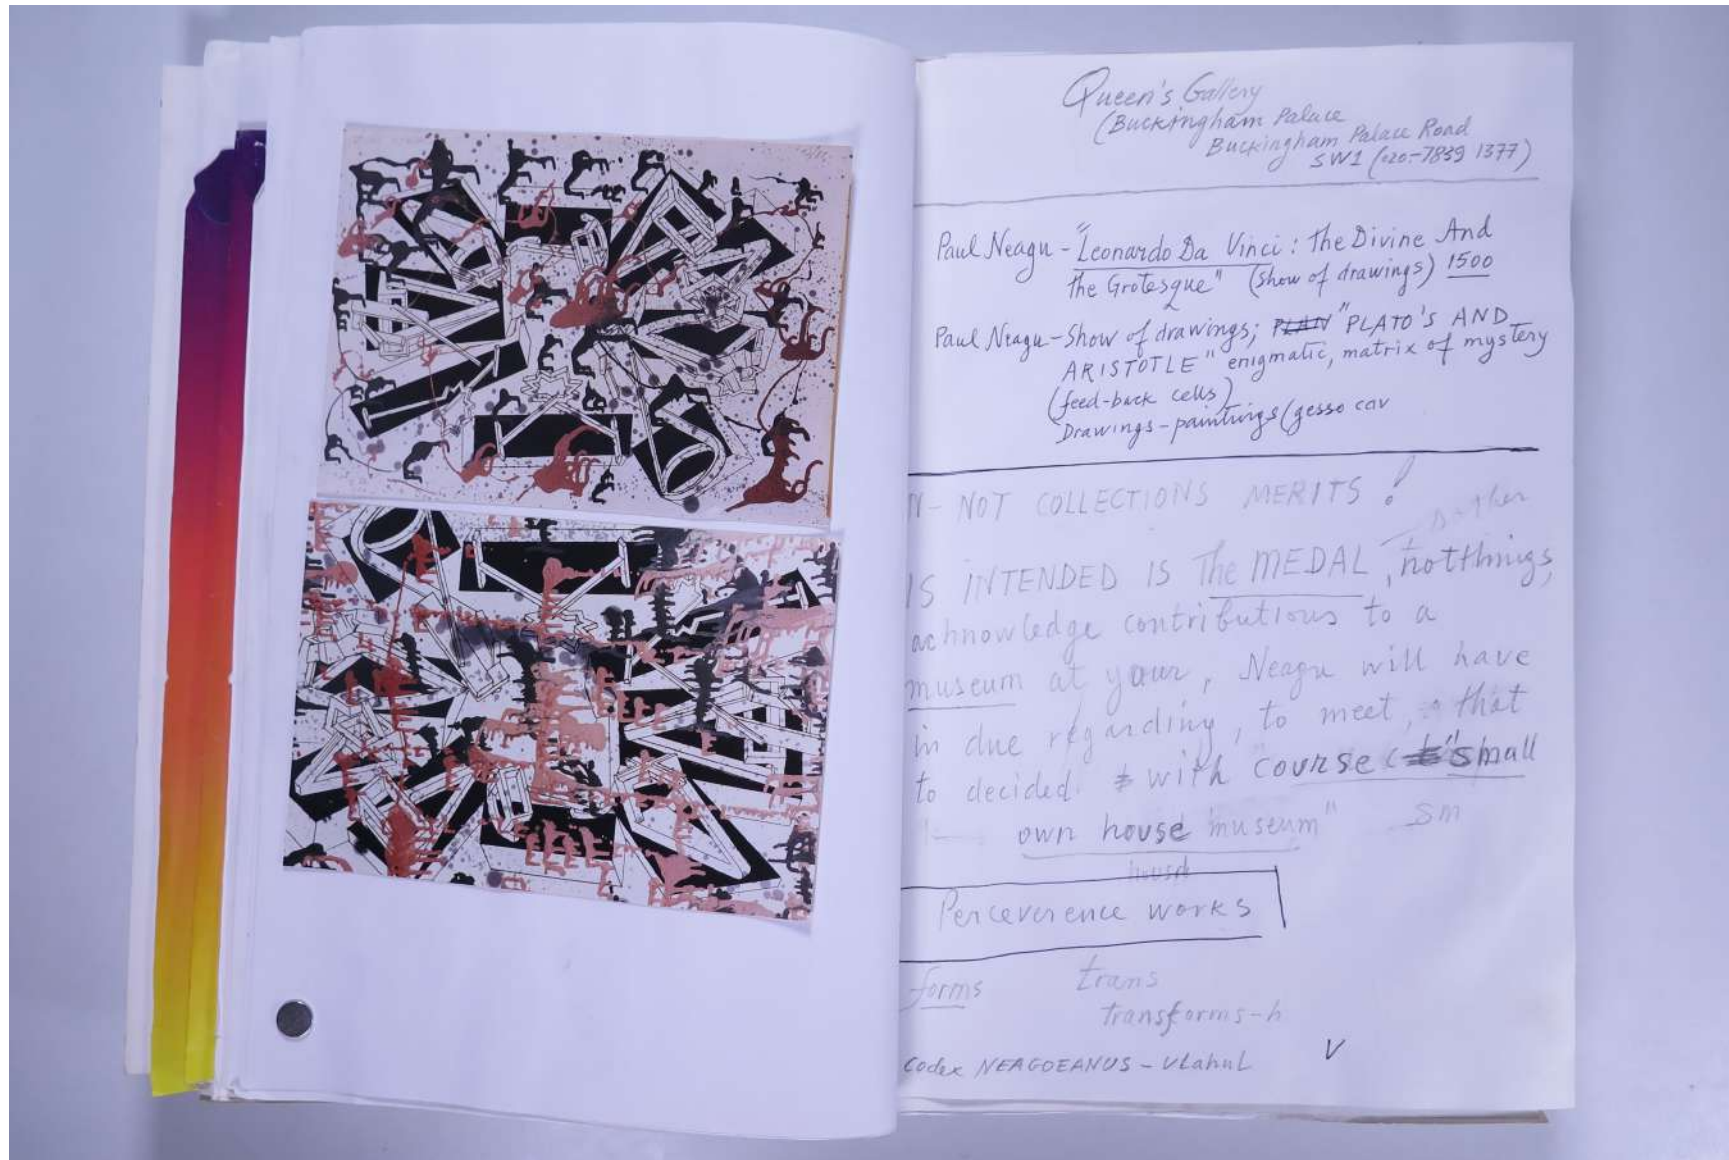 Queen's Gallery
(Buckingham Palace
Buckingham Palace Road
SW1 (020-7839 1377)
Paul Neagu - "Leonardo Da Vinci : the Divine And
the Grotesque" (show of drawings) 1500
Paul Neagu - Show of drawings; PLAN "PLATO'S AND
ARISTOTLE" enigmatic, matrix of mystery
(feed-back cells)
Drawings - paintings (gesso cav
N - NOT COLLECTIONS MERITS !
IS INTENDED IS The MEDAL, notthings,
acknowledge contributions to a
museum at your, Neagu will have
in due regarding, to meet, that
to decided with "course ( "small
own house "museum" sm
house
Perceverence works
forms trans
transforms-h
Codex NEAGOEANUS - VLahuL V